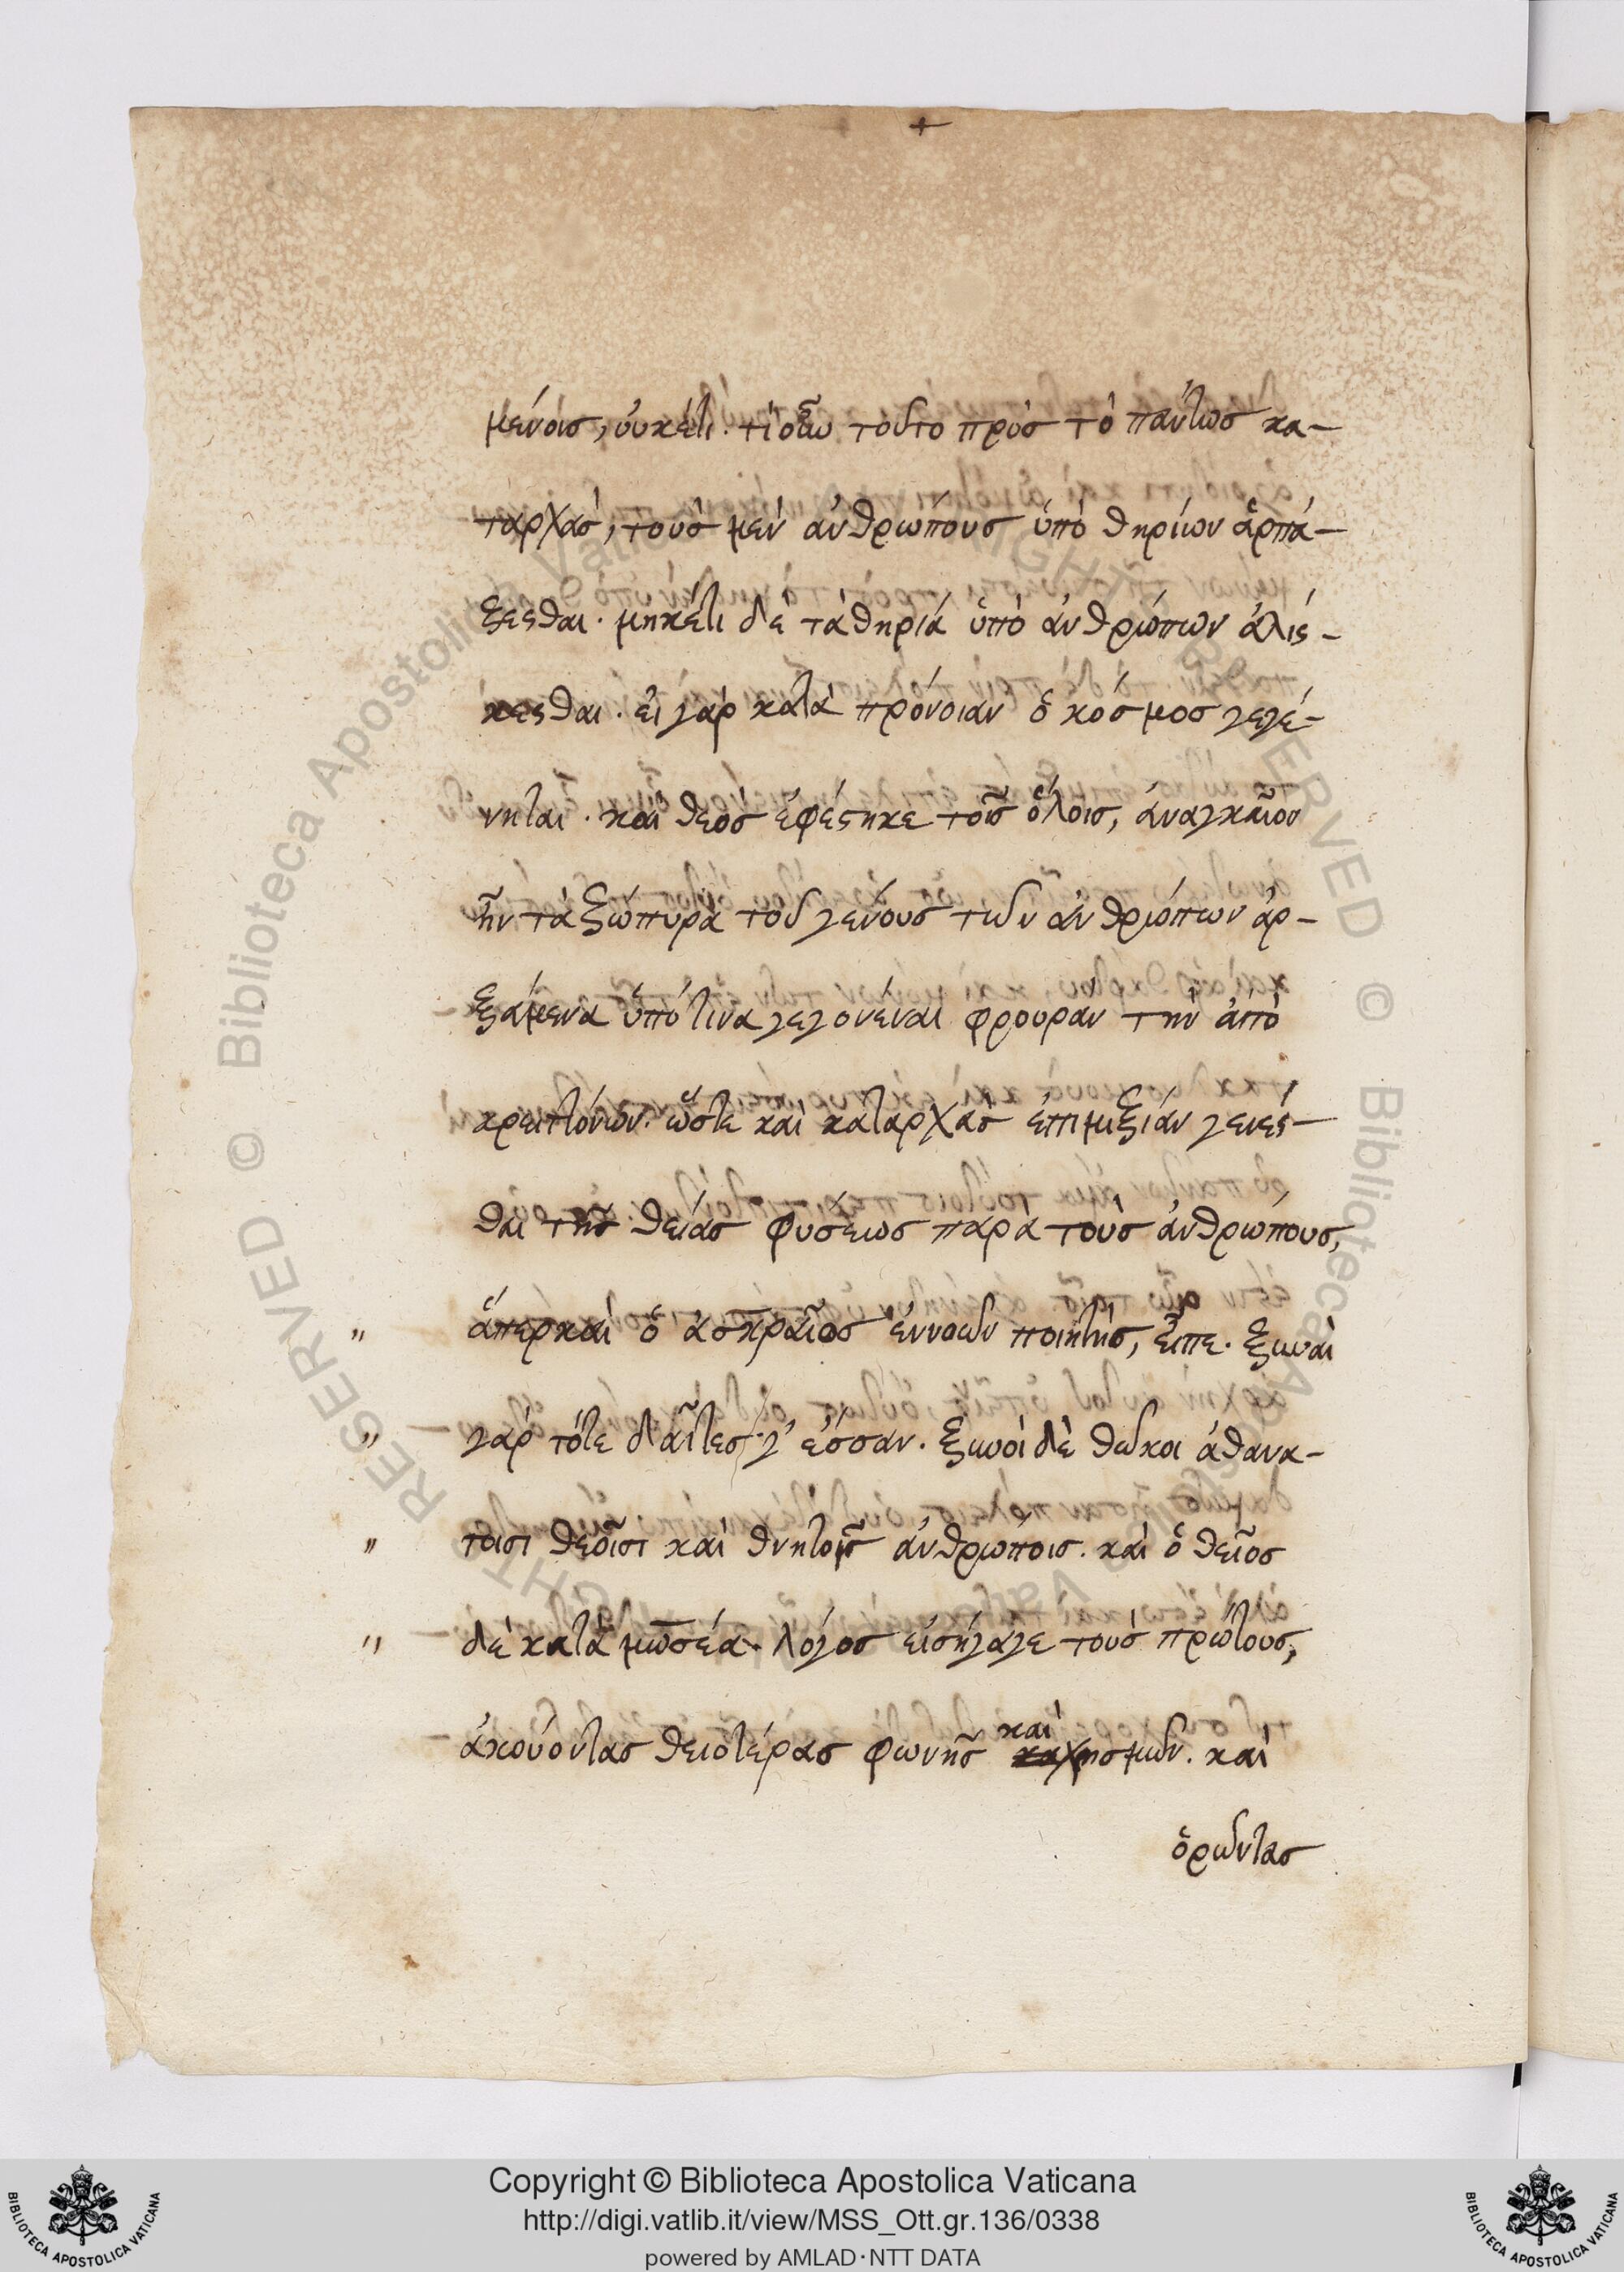 +
μένοις, οὐκέτι. τί οὖν τοῦτο πρὸς τὸ πάντως κα-
ταρχὰς, τοὺς μὲν ἀνθρώπους ὑπὸ θηρίων ἁρπά-
ζεσθαι. μηκέτι δὲ τὰ θηρία ὑπὸ ἀνθρώπων ἁλίσ-
κεσθαι. εἰ γὰρ κατὰ πρόνοιαν ὁ κόσμος γεγέ-
νηται. καὶ θεὸς ἐφέστηκε τοῖς ὅλοις, ἀναγκαῖον
ἦν τὰ ζώπυρα τοῦ γένους τῶν ἀνθρώπων ἀρ-
ξάμενα ὑπό τινα γεγονέναι φρουρὰν τὴν ἀπὸ
κρειττόνων. ὥστε καὶ καταρχὰς ἐπιμιξίαν γενέσ-
θαι τῆς θείας φύσεως παρὰ τοὺς ἀνθρώπους,
" ἅπερ καὶ ὁ ἀσκραῖος ἐννοῶν ποιητὴς, εἶπε. ξυναὶ
" γὰρ τότε δαῖτες γ' ἔσσαν. ξυνοὶ δὲ θῶκοι ἀθανα-
" τοισι θεοῖσι καὶ θνητοῖς ἀνθρώποις. καὶ ὁ θεῖος
" δὲ κατὰ μωσέα λόγος εἰσήγαγε τοὺς πρώτους,
ἀκούοντας θειοτέρας φωνῆς καὶ χρησμῶν. καὶ
ὁρῶντας
RIGHTS RESERVED © Biblioteca Apostolica Vaticana
Copyright © Biblioteca Apostolica Vaticana
http://digi.vatlib.it/view/MSS_Ott.gr.136/0338
powered by AMLAD·NTT DATA
BIBLIOTECA APOSTOLICA VATICANA
BIBLIOTECA APOSTOLICA VATICANA